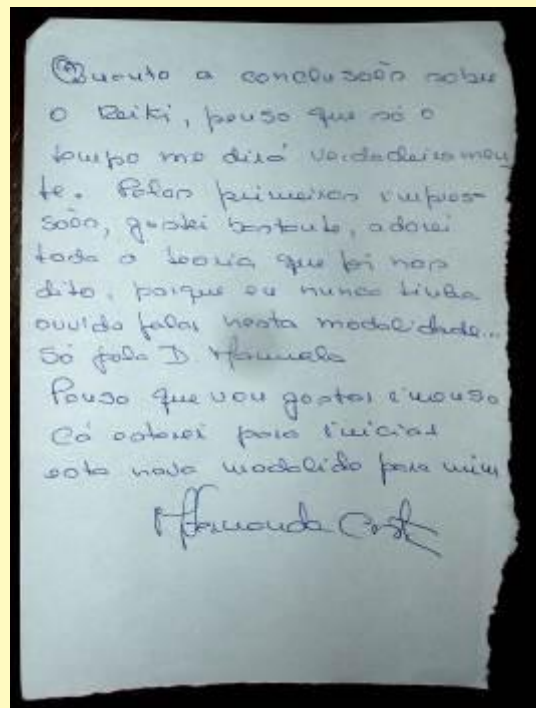 Quanto a conclusões sobre
o Reiki, penso que só o
tempo me dirá verdadeiramen
te. Pelas primeiras impres-
sões, gostei bastante, adorei
toda a teoria que foi nos
dito, porque eu nunca tinha
ouvido falar nesta modalidade...
Só pela D. Manuela
Penso que vou gostar imenso
Cá estarei para iniciar
esta nova modalida para mim